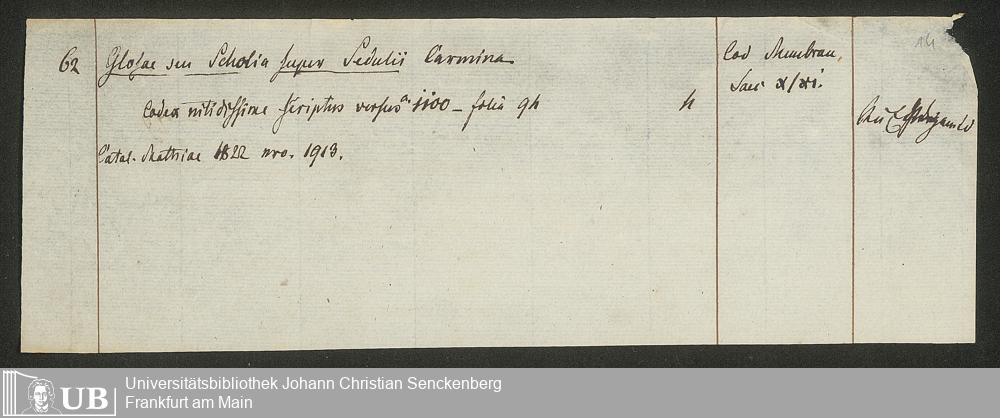 62 Glosae seu Scholia super Sedulii Carmina
Cod Membran.
14
Codex nitidissime scriptus versus 1100 – folia 94 4
Saec x/xi.
Catal. Mathiae 1822 nro. 1913.
UB
Universitätsbibliothek Johann Christian Senckenberg
Frankfurt am Main